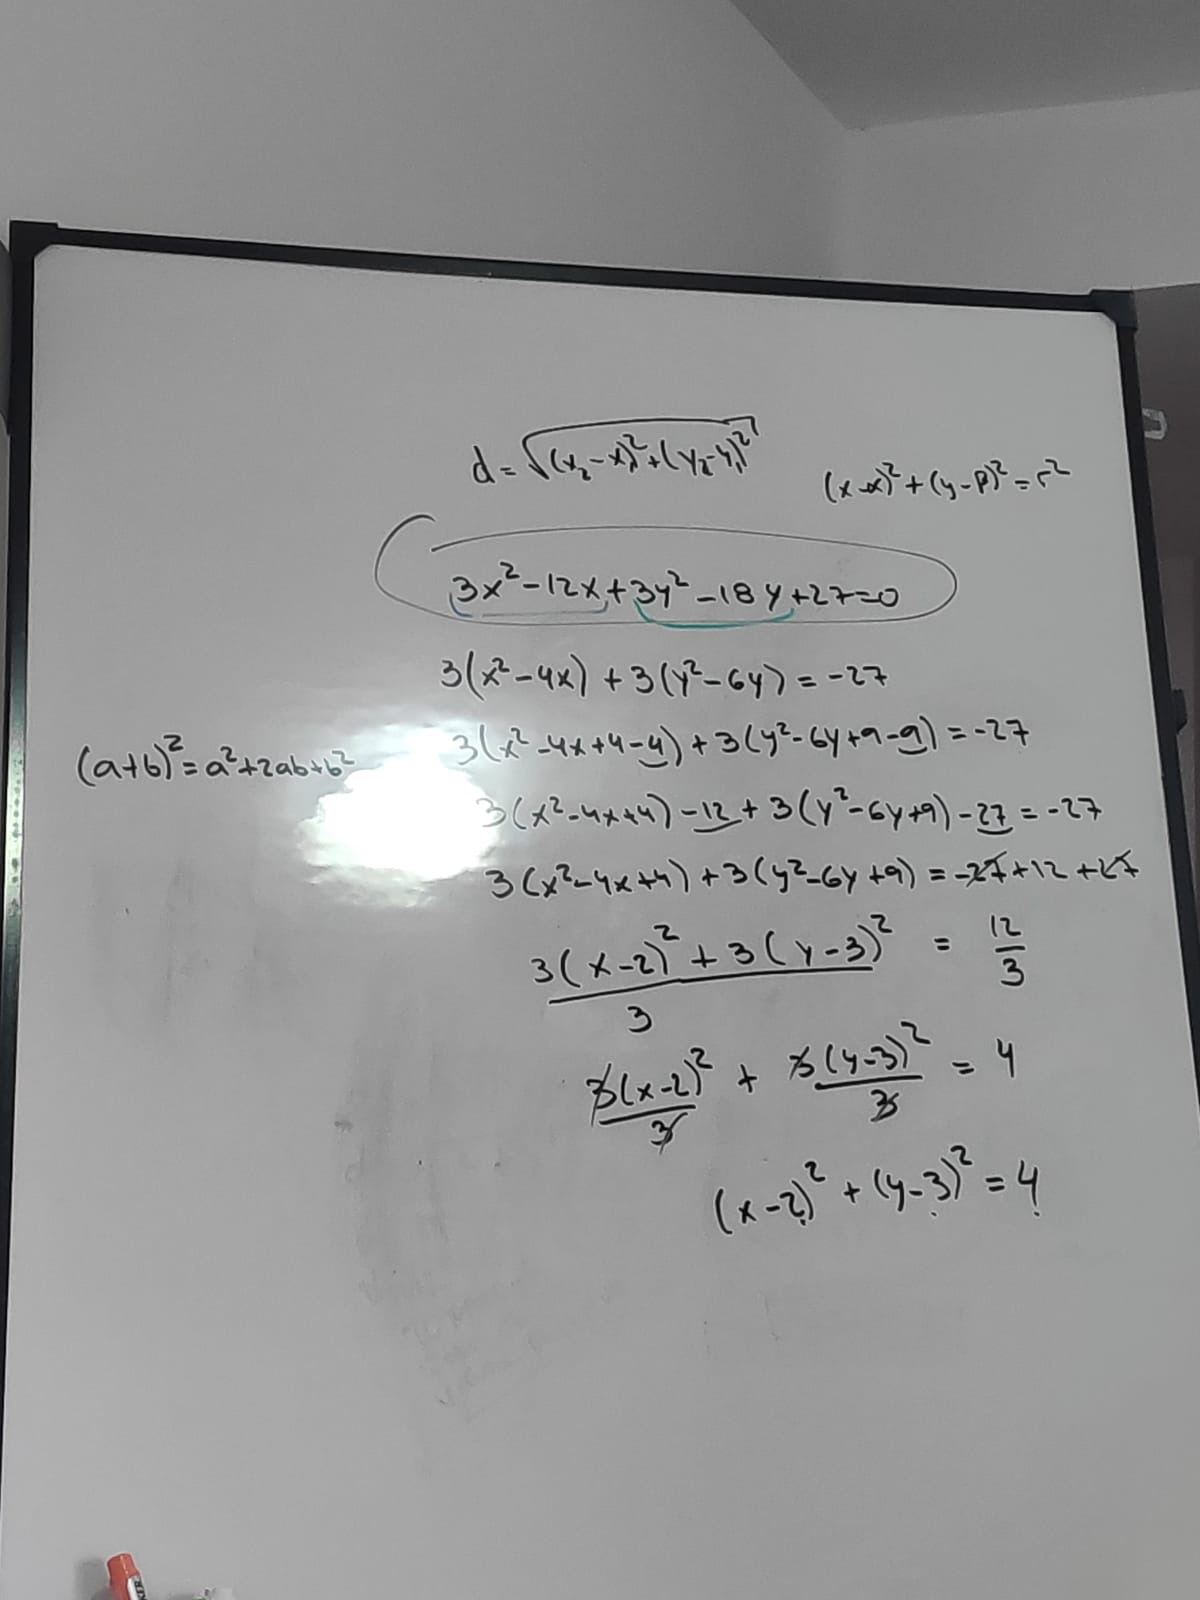 d = √(x₂-x₁)²+(y₂-y₁)²
(x-α)²+(y-β)²=r²
3x²-12x+3y²-18y+27=0
3(x²-4x)+3(y²-6y)=-27
(a+b)²=a²+2ab+b²
3(x²-4x+4-4)+3(y²-6y+9-9)=-27
3(x²-4x+4)-12+3(y²-6y+9)-27=-27
3(x²-4x+4)+3(y²-6y+9)=-27+12+27
3(x-2)²+3(y-3)² = 12
3 3
3(x-2)² + 3(y-3)² = 4
3 3
(x-2)²+(y-3)²=4